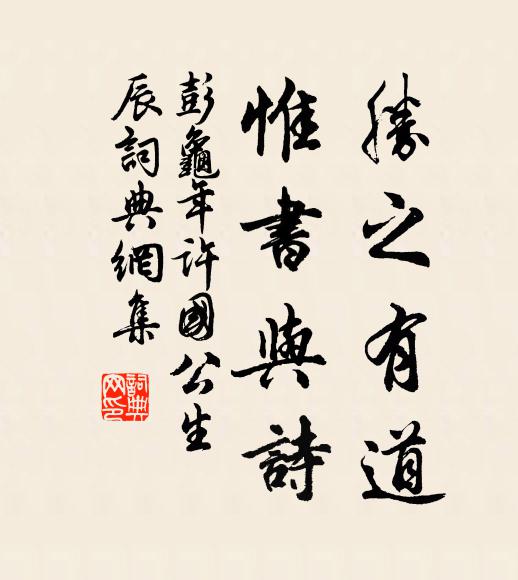 勝之有道
惟書與詩
彭龜年許國公生
辰詞典網集
詞典
网印